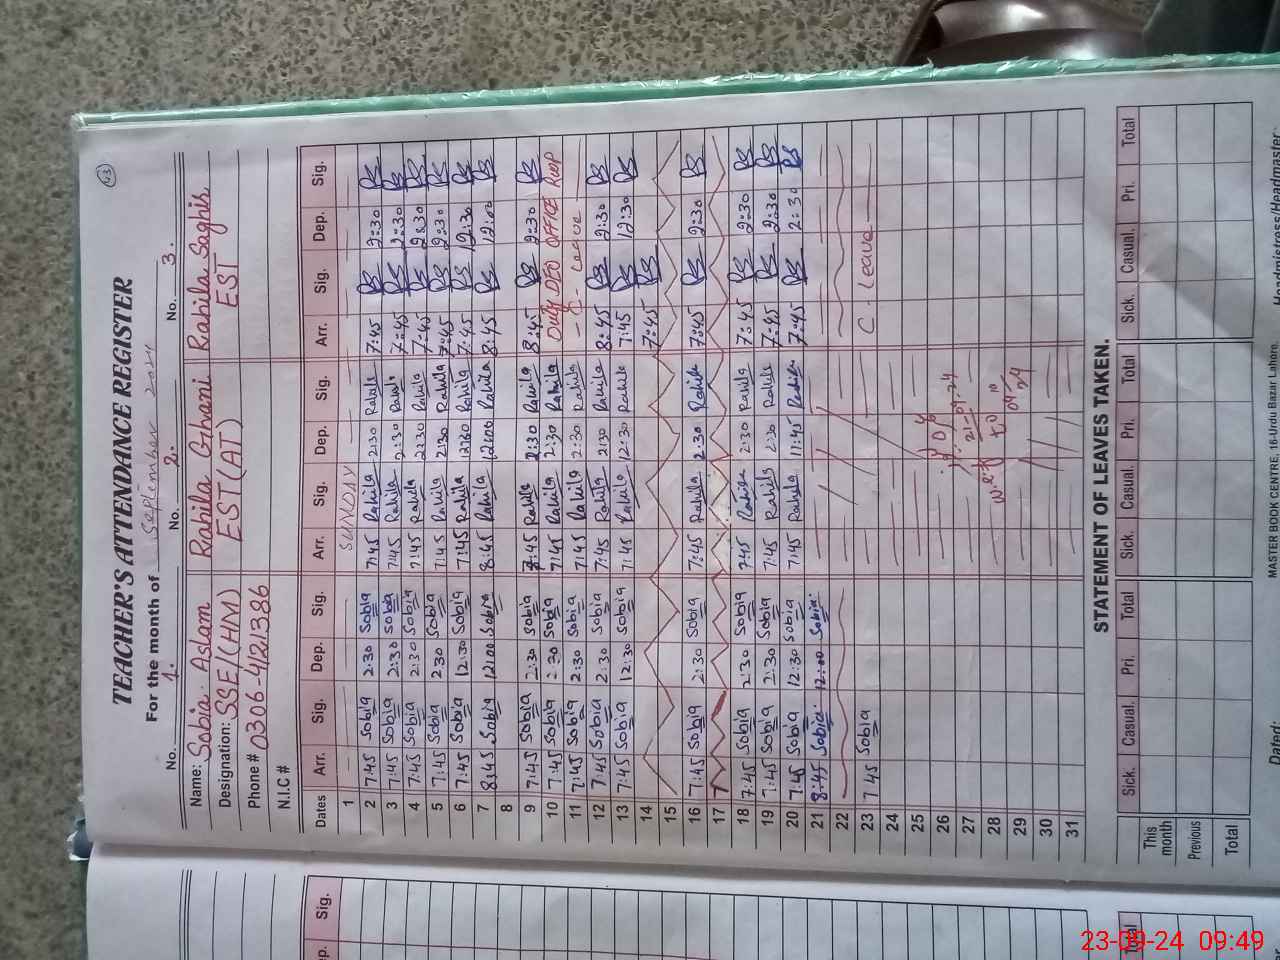 63
TEACHER'S ATTENDANCE REGISTER
For the month of September 2024
No. 1. No. 2. No. 3.
Name: Sobia Aslam Rahila Gihani Rahila Saghir
Designation: SSE/(HM) EST(AT) EST
Phone # 0306-4121386
N.I.C #
Dates Arr. Sig. Dep. Sig. Arr. Sig. Dep. Sig. Arr. Sig. Dep. Sig.
1 SUNDAY
2 7:45 Sobia 2:30 Sobia 7:45 Rahila 2:30 Rahila 7:45 RS 2:30 RS
3 7:45 Sobia 2:30 Sobia 7:45 Rahila 2:30 Rahila 7:45 RS 2:30 RS
4 7:45 Sobia 2:30 Sobia 7:45 Rahila 2:30 Rahila 7:45 RS 2:30 RS
5 7:45 Sobia 2:30 Sobia 7:45 Rahila 2:30 Rahila 7:45 RS 2:30 RS
6 7:45 Sobia 12:30 Sobia 7:45 Rahila 12:30 Rahila 7:45 RS 12:30 RS
7 8:45 Sobia 12:00 Sobia 8:45 Rahila 12:00 Rahila 8:45 RS 12:00 RS
8
9 7:45 Sobia 2:30 Sobia 8:45 Rahila 2:30 Rahila 8:45 RS 2:30 RS
10 7:45 Sobia 2:30 Sobia 7:45 Rahila 2:30 Rahila Duty DEO OFFICE
11 7:45 Sobia 2:30 Sobia 7:45 Rahila 2:30 Rahila C. Leave
12 7:45 Sobia 2:30 Sobia 7:45 Rahila 2:30 Rahila 8:45 RS 2:30 RS
13 7:45 Sobia 12:30 Sobia 7:45 Rahila 12:30 Rahila 7:45 RS 12:30 RS
14 7:45 RS
15
16 7:45 Sobia 2:30 Sobia 7:45 Rahila 2:30 Rahila 7:45 RS 2:30 RS
17
18 7:45 Sobia 2:30 Sobia 7:45 Rahila 2:30 Rahila 7:45 RS 2:30 RS
19 7:45 Sobia 2:30 Sobia 7:45 Rahila 2:30 Rahila 7:45 RS 2:30 RS
20 7:45 Sobia 12:30 Sobia 7:45 Rahila 11:45 Rahila 7:45 RS 2:30 RS
21 8:45 Sobia 12:00 Sobia
22
23 7:45 Sobia C. Leave
24
25
26
27 21-09-24
28 to
29
30
31
STATEMENT OF LEAVES TAKEN.
Sick. Casual. Pri. Total Sick. Casual. Pri. Total Sick. Casual. Pri. Total
This month
Previous
Total
MASTER BOOK CENTRE, 16-Urdu Bazar Lahore.
Dated: Headmistress/Headmaster
Sig.
Total
23-09-24 09:49